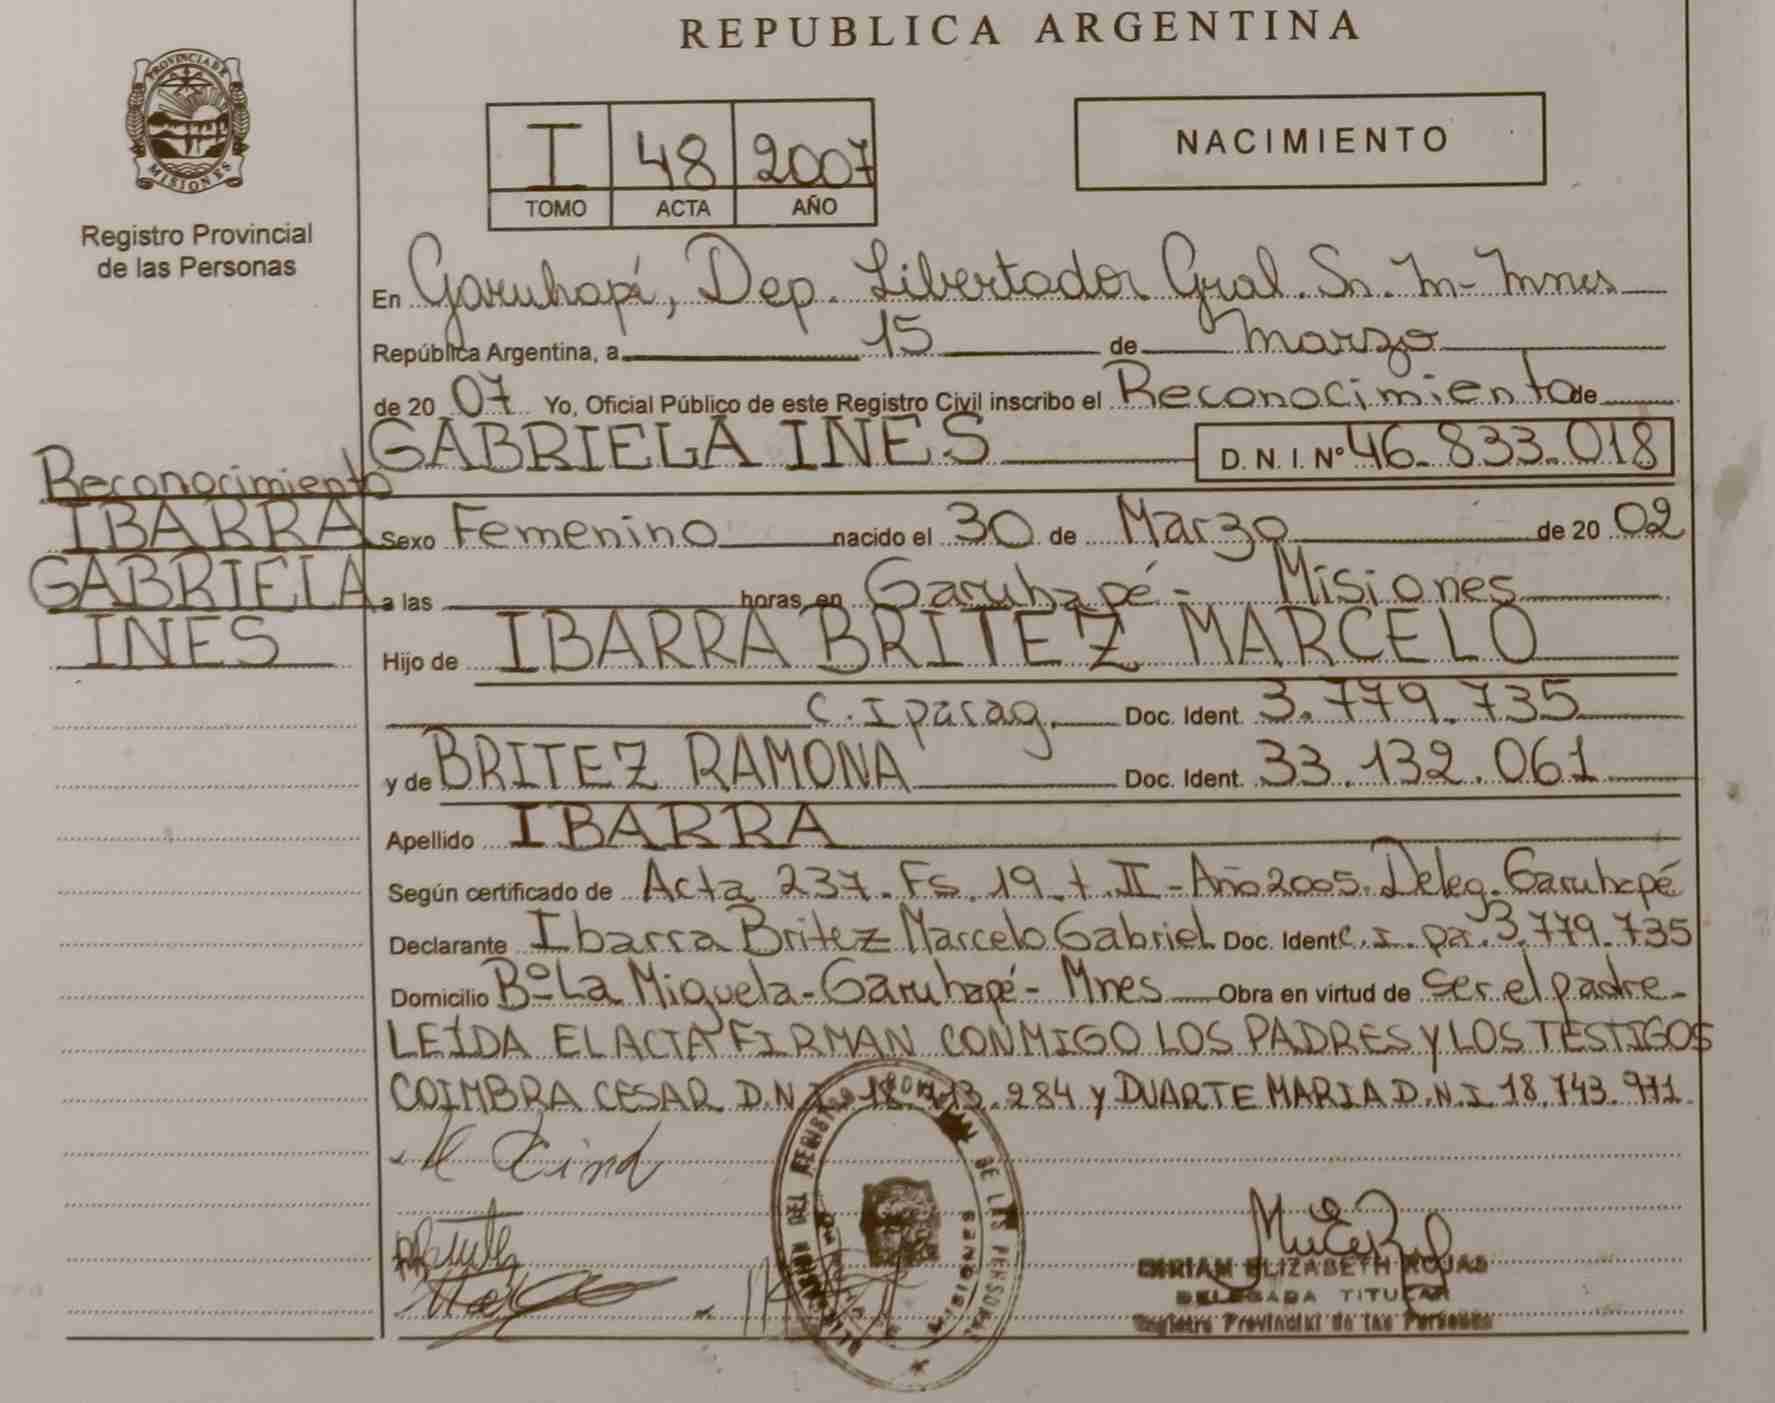 REPUBLICA ARGENTINA
PROVINCIA DE
MISIONES
Registro Provincial
de las Personas
I 48 2007
TOMO ACTA AÑO
NACIMIENTO
En Garuhapí, Dep. Libertador Gral. Sn. M- Mnes
República Argentina, a 15 de marzo
de 20 07 Yo, Oficial Público de este Registro Civil inscribo el Reconocimiento de
GABRIELA INES D. N. I. Nº 46.833.018
Reconocimiento
IBARRA
GABRIELA
INES
Sexo Femenino nacido el 30 de Marzo de 20 02
a las horas, en Garuhapé - Misiones
Hijo de IBARRA BRITEZ MARCELO
C. I parag. Doc. Ident. 3.779.735
y de BRITEZ RAMONA Doc. Ident. 33.132.061
Apellido IBARRA
Según certificado de Acta 237. Fs. 19. t. II - Año 2005. Deleg. Garuhapé
Declarante Ibarra Britez Marcelo Gabriel Doc. Ident C. I. pa. 3.779.735
Domicilio Bº La Miguela - Garuhapé - Mnes Obra en virtud de ser el padre
LEÍDA EL ACTA FIRMAN CONMIGO LOS PADRES Y LOS TESTIGOS
COIMBRA CESAR D.N.I. 284 y DUARTE MARIA D.N.I 18.743.971.
MIRIAM ELIZABETH ROJAS
DELEGADA TITULAR
Registro Provincial de las Personas